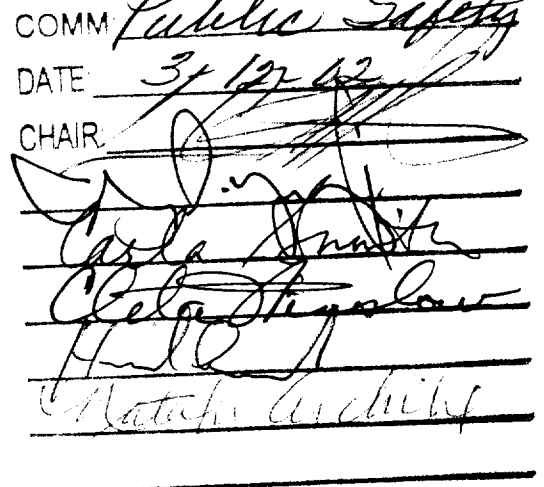 COMM Public Safety
DATE 3/12/02
CHAIR
Carla Smith
Cleta Winslow
Natalyn Archibong